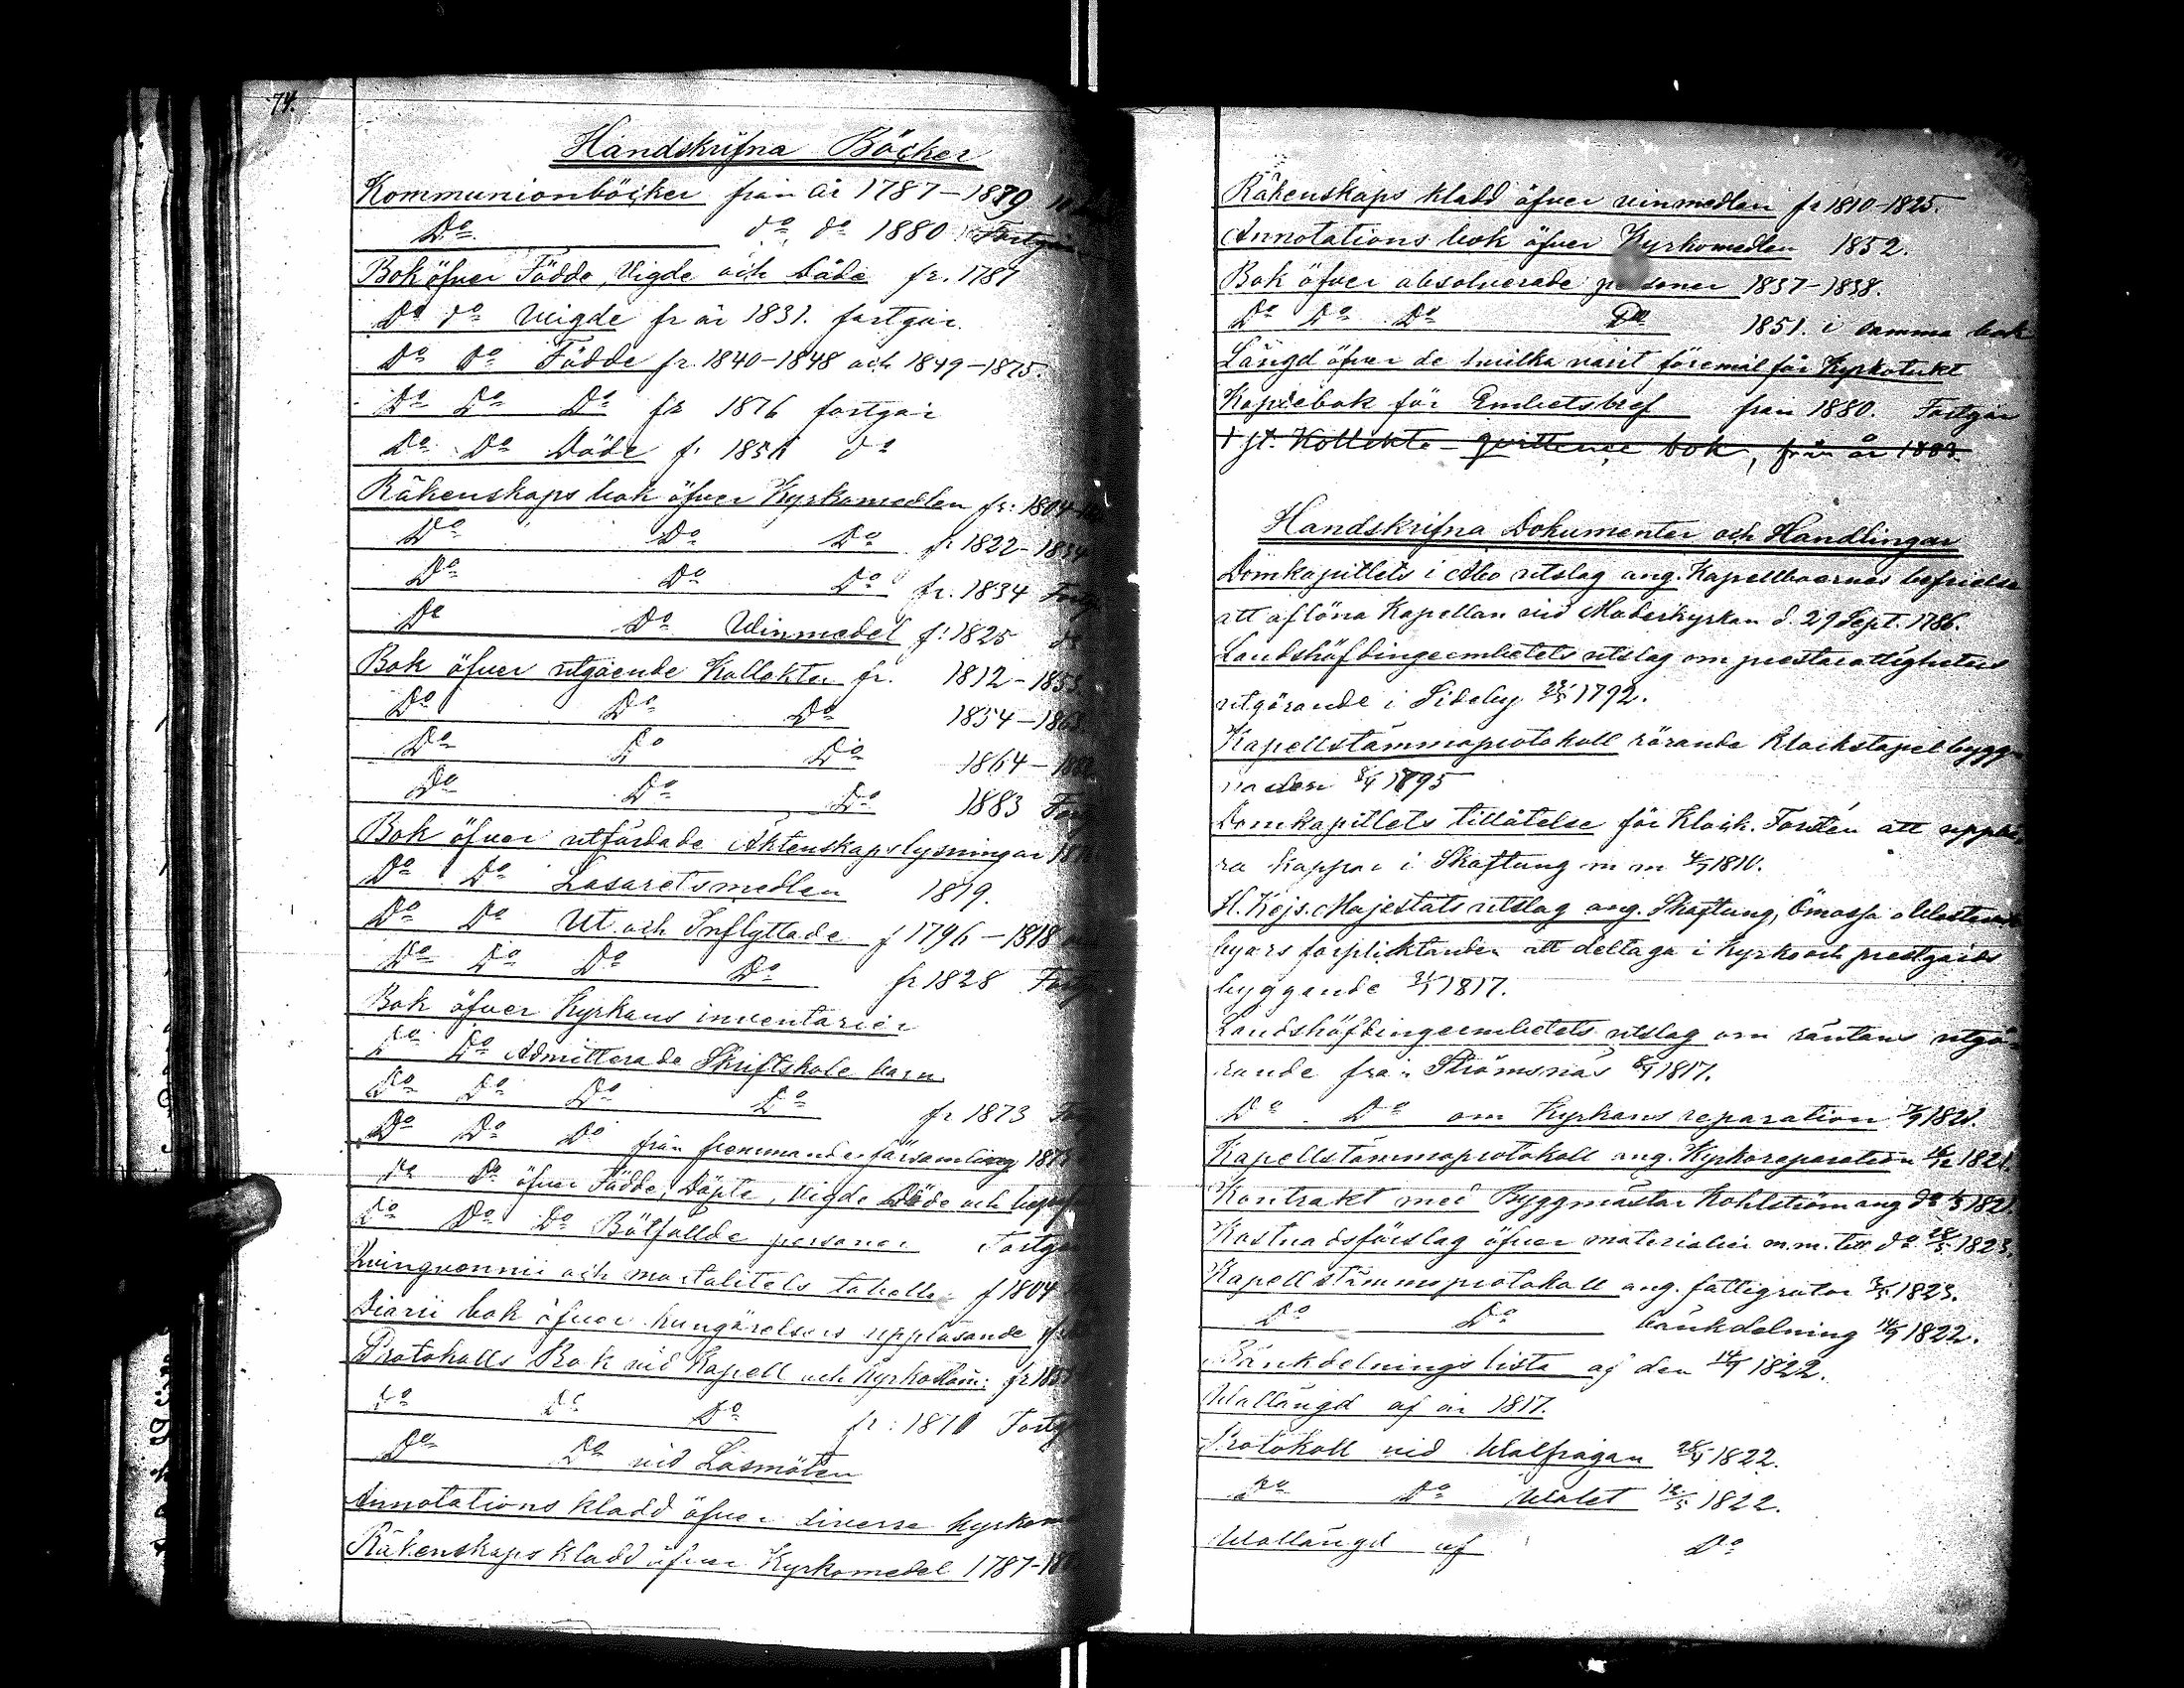 74.
Handskrifna Böcker
Kommunionböcker från år 1787-1879
Do do do 1880 Fortgår
Bok öfver Födde, Vigde och Döde fr. 1787
Do do Vigde fr år 1831. fortgår.
Do Do Födde fr. 1840-1848 och 1849-1875.
Do Do Do fr 1876 fortgår
Do Do Döde f. 1856 do
Räkenskaps bok öfver Kyrkomedlen fr: 1804-
Do Do Do fr 1822-1834
Do Do Do fr. 1834
Do Do Winmedel f: 1825 do
Bok öfver utgående Kollekter fr. 1812-1853.
Do Do Do 1854-1863.
Do Do Do 1864-
Do Do Do 1883
Bok öfver utfärdade Äktenskapslysningar
Do Do Lasaretsmedlen 1819.
Do Do Ut och Inflyttade f 1796-1818
Do Do Do Do fr 1828
Bok öfver Kyrkans inventarier
Do Do Admitterade Skriftskole barn
Do Do Do Do fr 1873
Do Do Do från fremmande församling
Do Do öfver Födde, Döpte, Vigde Döde och
Do Do Do Bötfällde personer Fortgår
Qvinqvennii och mortalitets tabeller f 1804
Diarii bok öfver kungörelsers uppläsande
Protokolls Bok vid Kapell och Kyrkostäm:
Do Do Do fr: 1870
Do Do vid Läsmöten
Annotations kladd öfver diverse
Räkenskaps kladd öfver Kyrkomedel 1787-
Räkenskaps kladd öfver vinmedlen fr 1810-1825.
Annotations bok öfver Kyrkomedlen 1852.
Bok öfver absolverade personer 1837-1838.
Do Do Do Do 1851. i samma bok
Längd öfver de hvilka varit föremål för Kyrkotukt
Kopiebok för Embetsbref från 1880. Fortgår
1 st. Kollekte-qvittence bok, från år 1883.
Handskrifna Dokumenter och Handlingar
Domkapitlets i Åbo utslag ang. Kapellboernes befrielse
att aflöna Kapellan vid Moderkyrkan d. 29 Sept. 1786.
Landshöfdingeembetets utslag om prestarättigheters
utgörande i Sideby 1792.
Kapellstämmoprotokoll rörande Klockstapelbygg-
naden 1795
Domkapitlets tillåtelse för Klock. Forstén att uppbä-
ra kappar i Skaftung m m 1810.
H. Kejs. Majestäts utslag ang. Skaftung, Ömossa o
byars förpliktanden att deltaga i Kyrko och prestgårds
byggande 1817.
Landshöfdingeembetets utslag om räntans utgö-
rande från Strömsnäs 1817.
Do Do om Kyrkans reparation 1821.
Kapellstämmoprotokoll ang. Kyrkoreparation 1821.
Kontrakt med Byggmästar Kohlström ang do 1821.
Kostnadsförslag öfver materialier m.m. till do 1823.
Kapellstämmoprotokoll ang. fattigrotar 1823.
Do Do bänkdelning 14/4 1822.
Bänkdelningslista af den 14/4 1822.
Wallängd af år 1817.
Protokoll vid Walfrågan 28/4 1822.
Do Do Walet 12/5 1822.
Wallängd af Do